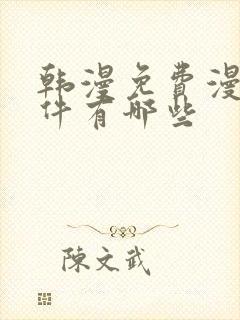 韩漫免費漫
件有哪些
陳文武